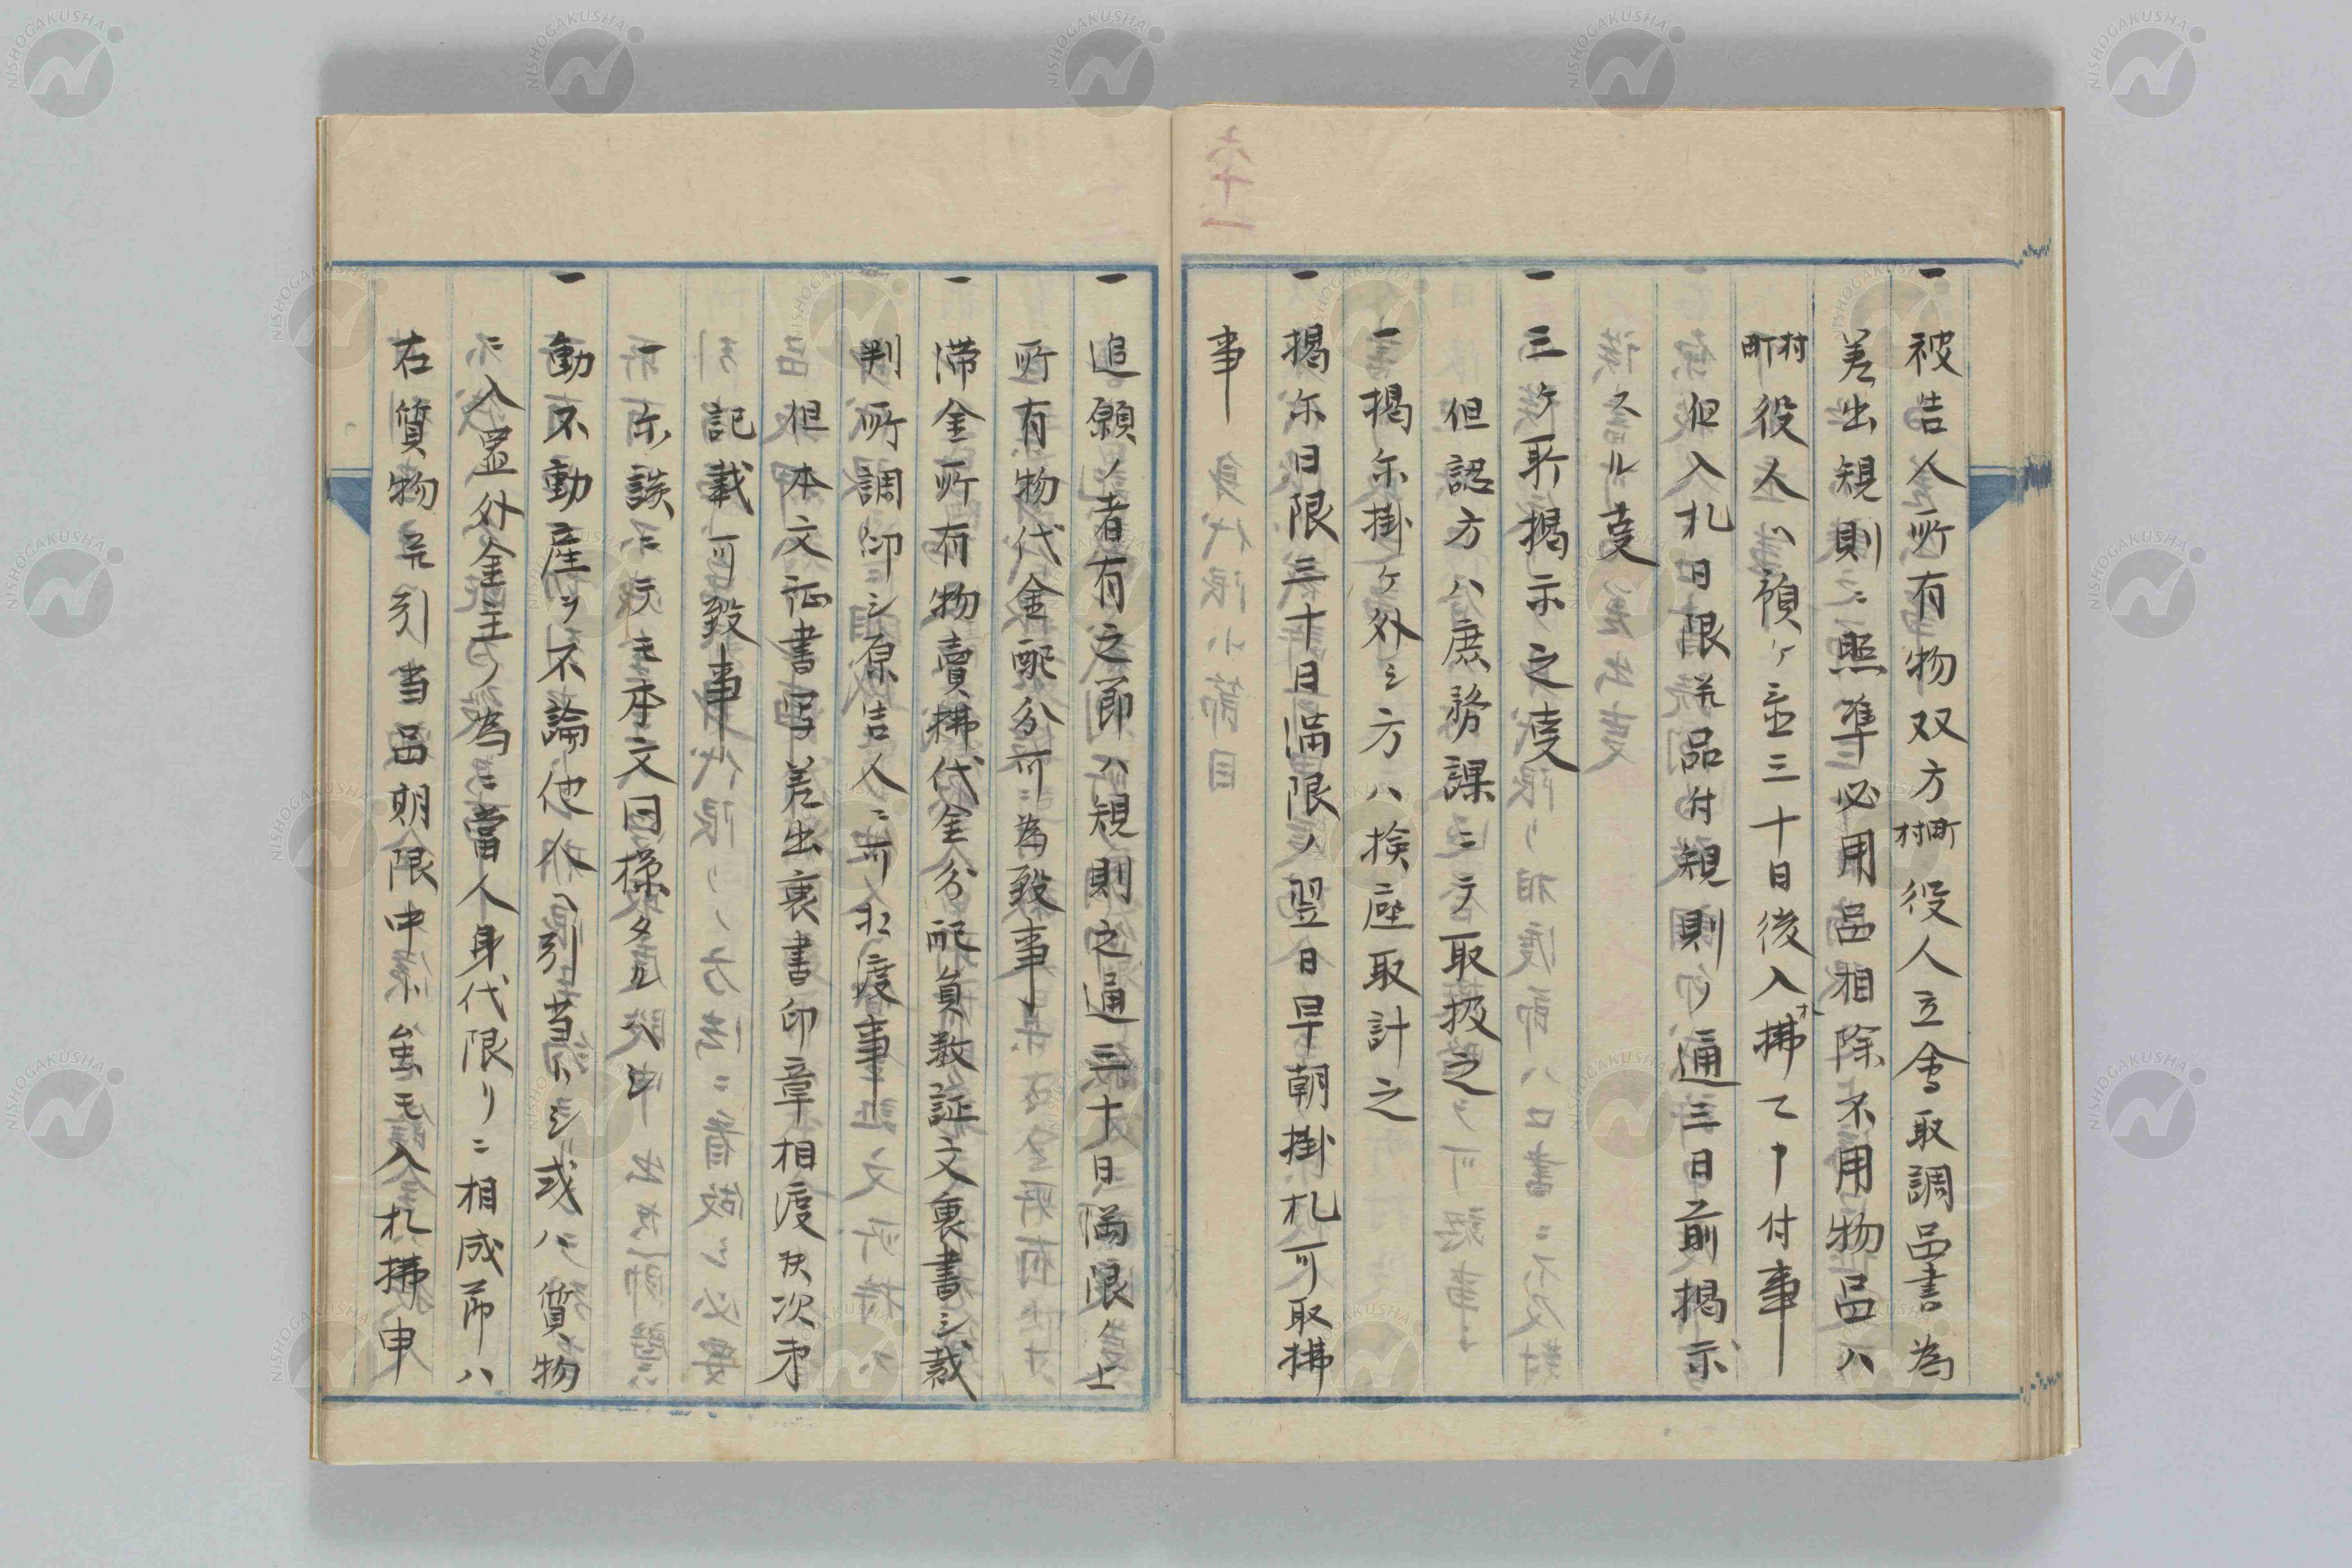 一 被告人所有物双方町村役人立会取調品書為
差出規則ニ照準必用品相除不用物品ハ
村町役人ヘ預ケ並三十日後入札払申付事
但入札日限并品付規則ノ通三日前掲示
スル事
一 三ケ所掲示之事
但認方ハ庶務課ニテ取扱之
一掲示掛ケ外シ方ハ検座取計之
一 掲示日限三十日満限ノ翌日早朝掛札可取払
事
一 追願ノ者有之節ハ規則之通三十日満限ノ上
所有物代金配分可為致事
一 滞金所有物売払代金分配負数証文裏書シ裁
判所調印シ原告人ニ可相渡事
但本文証書写差出裏書印章相渡候次第
記載可致事
一示談ニテモ本文同様タルヘシ
一 動不動産ヲ不論他人ヘ引当トシ或ハ質物
ニ入置外金主ノ為ニ当人身代限リニ相成節ハ
右質物并引当品期限中ト虽モ入札払申